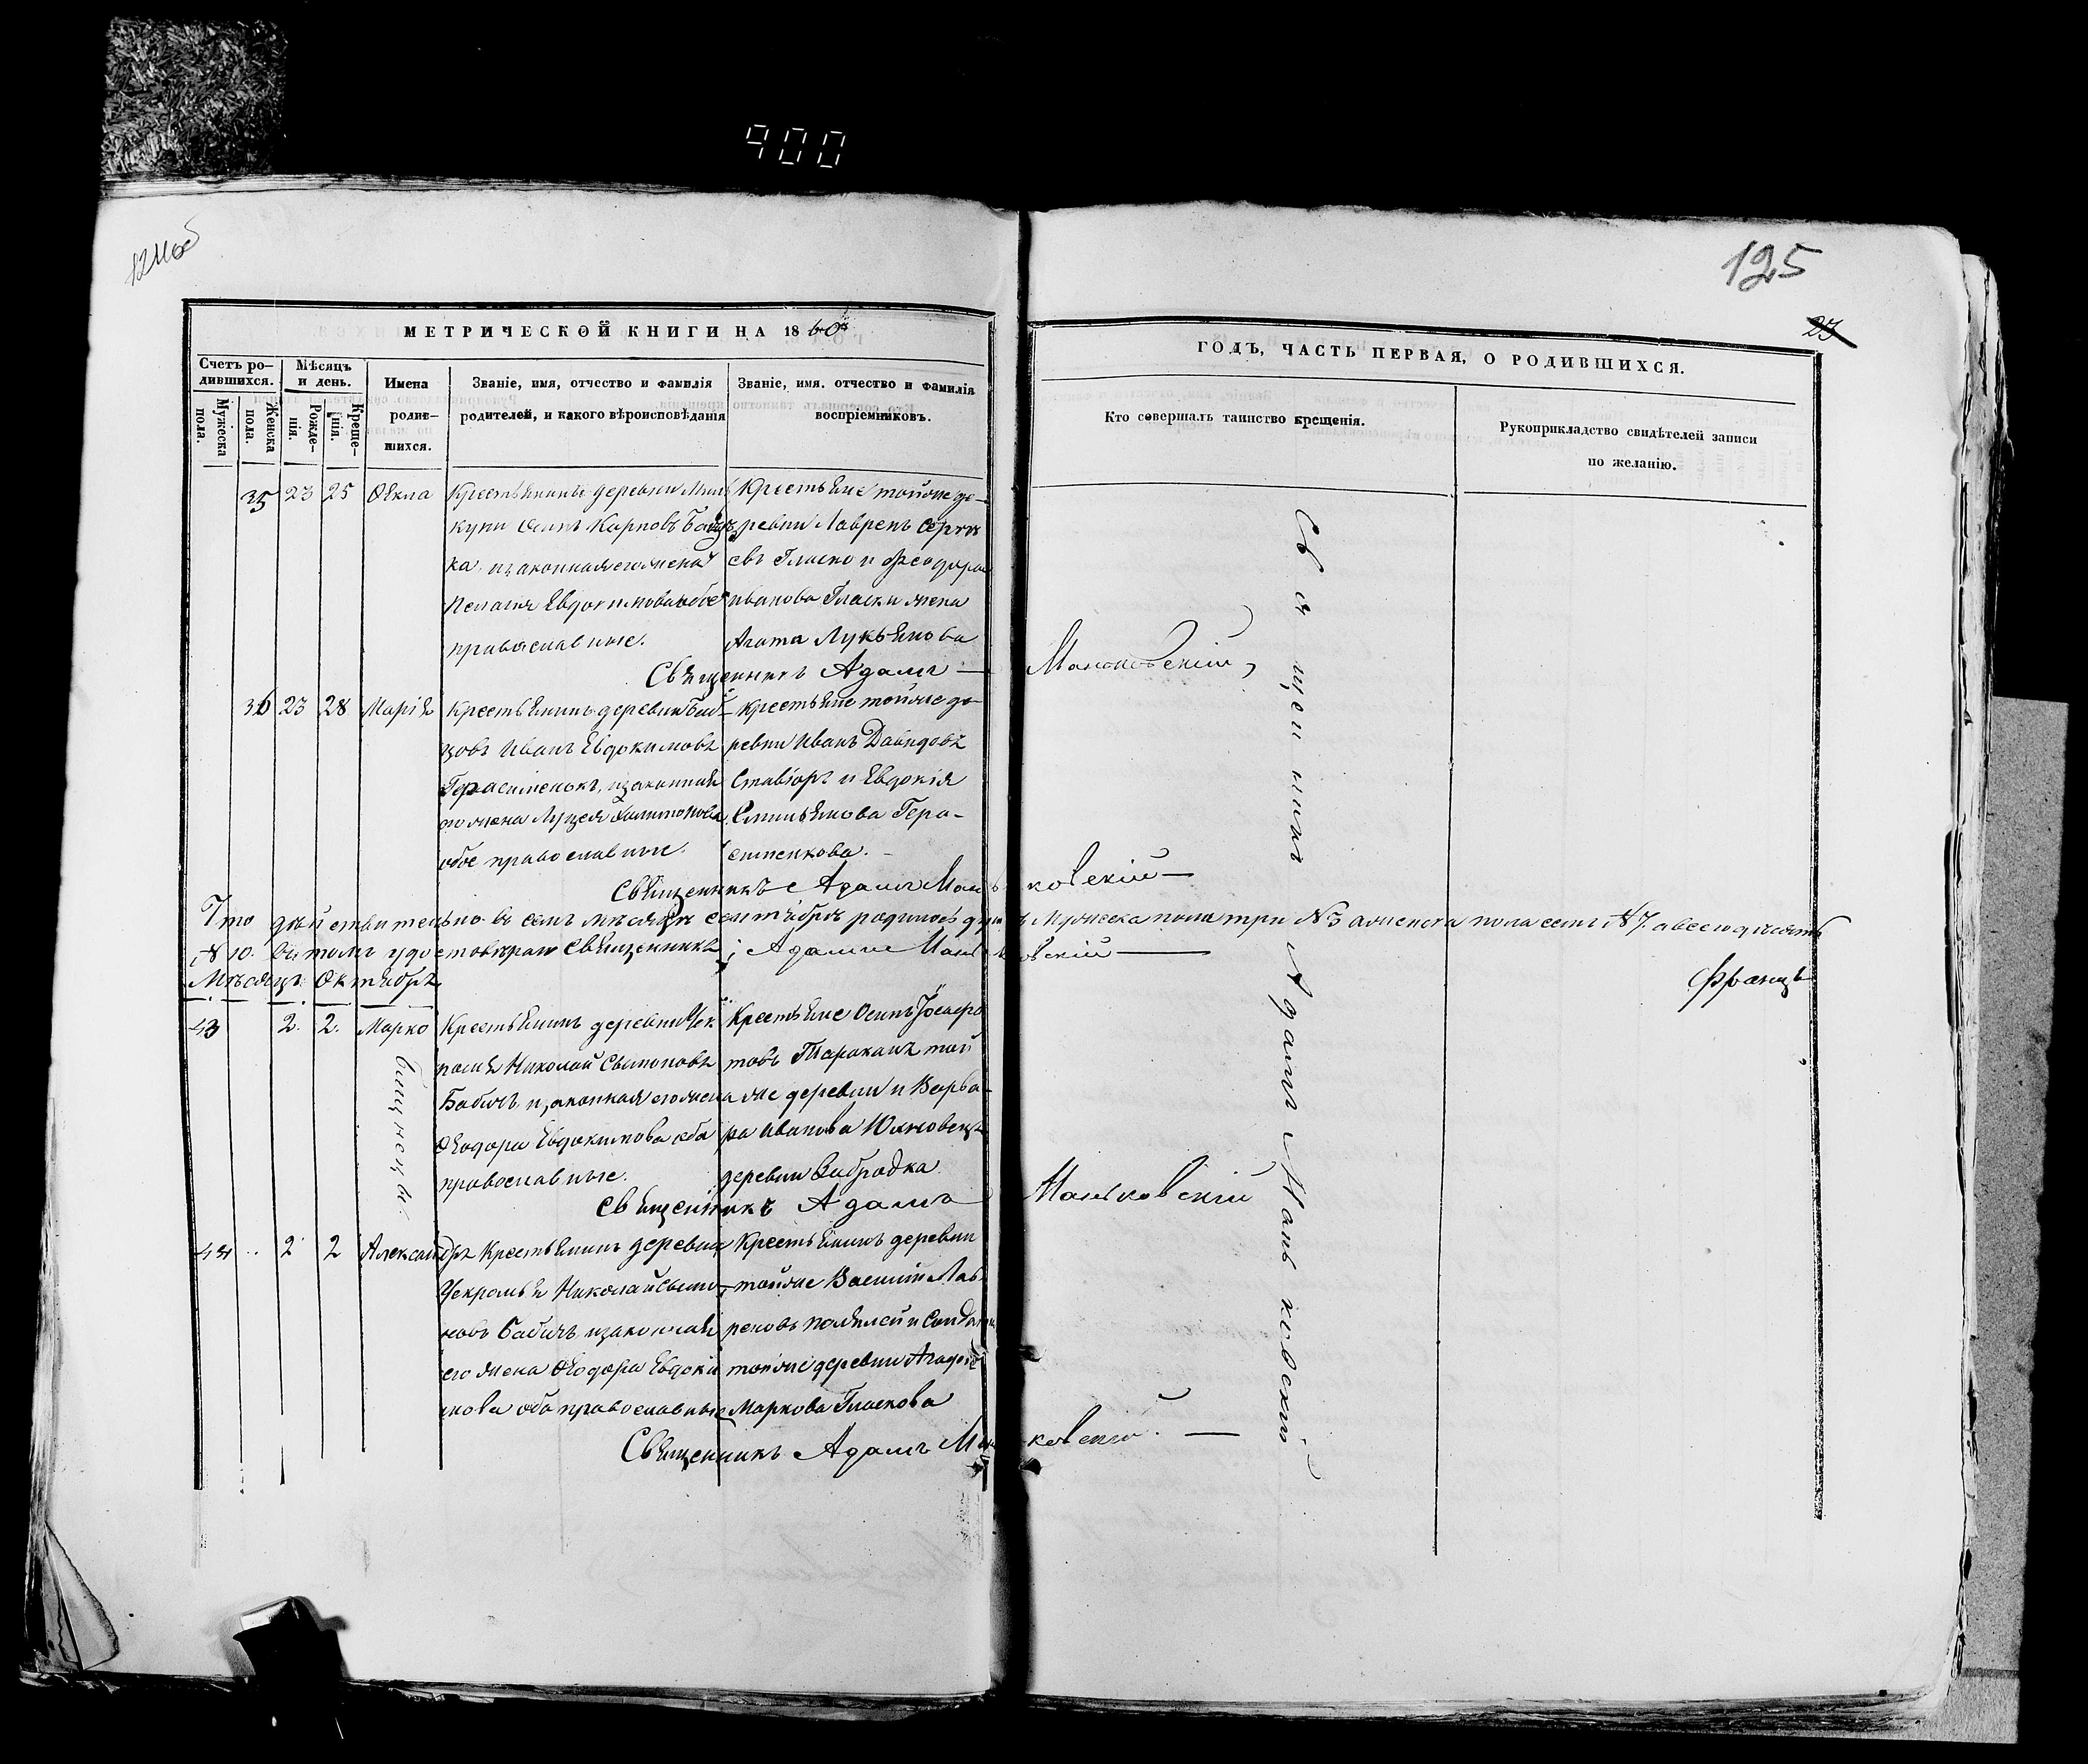 900
124об
125
23
МЕТРИЧЕСКОЙ КНИГИ НА 1860й
ГОДЪ, ЧАСТЬ ПЕРВАЯ, О РОДИВШИХСЯ.
Счетъ ро-
дившихся.
Мужеска
пола.
Женска
пола.
Мѣсяцъ
и день.
Рожде-
нія.
Креще-
нія.
Имена
родив-
шихся.
Званіе, имя, отчество и фамилія
родителей, и какого вѣроисповѣданія
Званіе, имя. отчество и фамилія
воспріемниковъ.
Кто совершалъ таинство крещенія.
Рукоприкладство свидѣтелей записи
по желанію.
35 23 25 Ѳекла
Крестьянинъ деревни
куки Осипъ Карповъ
ка, изаконная его жена
Пелагія Евдокимова обое
православные.
Крестьяне тойже де-
ревни Лавренъ
евъ Гласко и Феодора
Иванова Гласки жена
Агата Лукьянова
Священникъ Адамъ Маньковскій
36 23 28 Марія
Крестьянинъ деревни
цовъ Иванъ Евдокимовъ
Герасименокъ, изаконная
его жена Луцея Халимонова
обое православные.
Крестьяне тойже де-
ревни Иванъ Давидовъ
Ставіоръ и Евдокія
Емильянова Гера-
сименкова.
Священникъ Адамъ Маньковскій
Что дѣйствительно въ семъ мѣсяцѣ сентябрѣ родилось душъ мужеска пола три №3 аженска пола семь №7. авсего десять
№10. вътомъ удостовѣряю Священникъ Адамъ Маньковскій
Мѣсяцъ Октябрь
Францъ
43 2. 2. Марко
близнецы
Крестьянинъ деревни Чек
ромья Николай Сымоновъ
Бабичъ, изаконная его жена
Ѳеодора Евдокимова оба
православные.
Крестьяне Осипъ
товъ Тараканъ той
же деревни и Варва-
ра Иванова
деревни Забродка
Священникъ Адамъ Маньковскій
44 2 2 Александръ
Крестьянинъ деревни
Чекромья Николай Сымо-
новъ Бабичъ изаконная
его жена Ѳеодора Евдоки
мова оба православные
Крестьянинъ деревни
тойже Василій Лав-
реновъ
тойже деревни
Маркова Гласкова
Священникъ Адамъ Маньковскій
Священникъ Адамъ Маньковскій